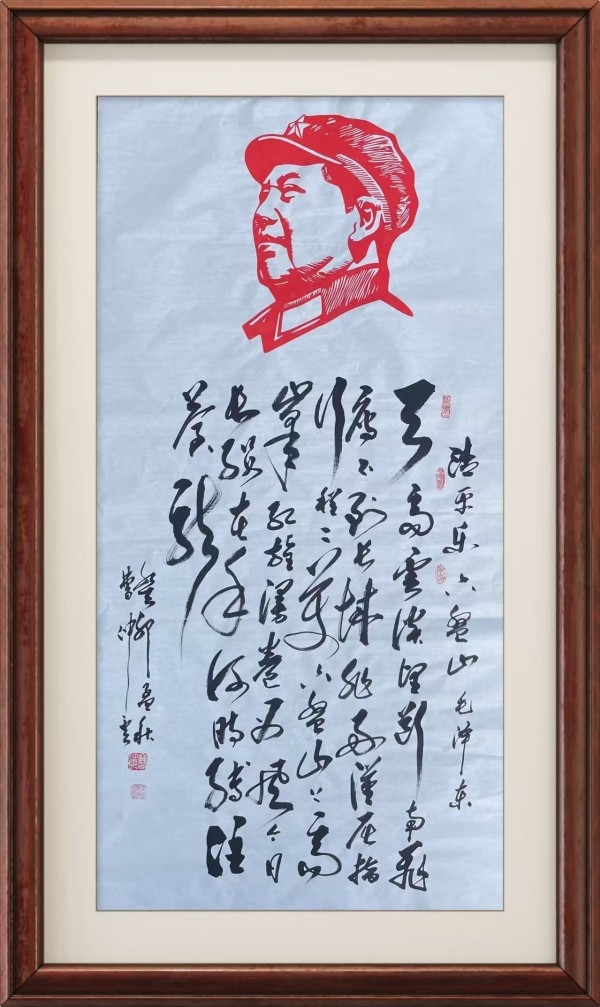 清平乐六盘山 毛泽东
天高雲淡望断南飛
雁不到长城非好漢屈指
行程二萬六盘山上高
峰红旗漫卷西風今日
长缨在手何時缚住
苍龙
癸卯孟秋